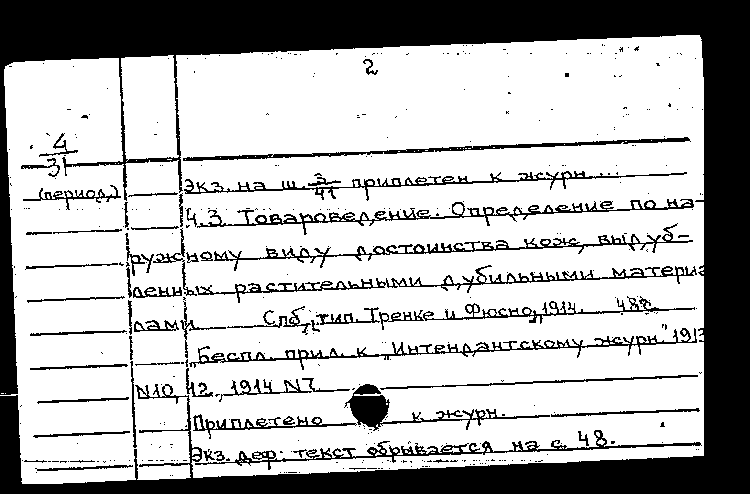 2
4
31
(период.)
Экз. на ш. 3/41 приплетен к журн....
4.3. Товароведение. Определение по на-
ружному виду достоинства кож, выдуб-
ленных растительными дубильными материа
лами Спб, тип. Тренке и Фюсно, 1914. 48
"Беспл. прил. к "Интендантскому журн." 1913
N10, 12, 1914 N7
Приплетено к журн.
Экз. деф: текст обрывается на с. 48.